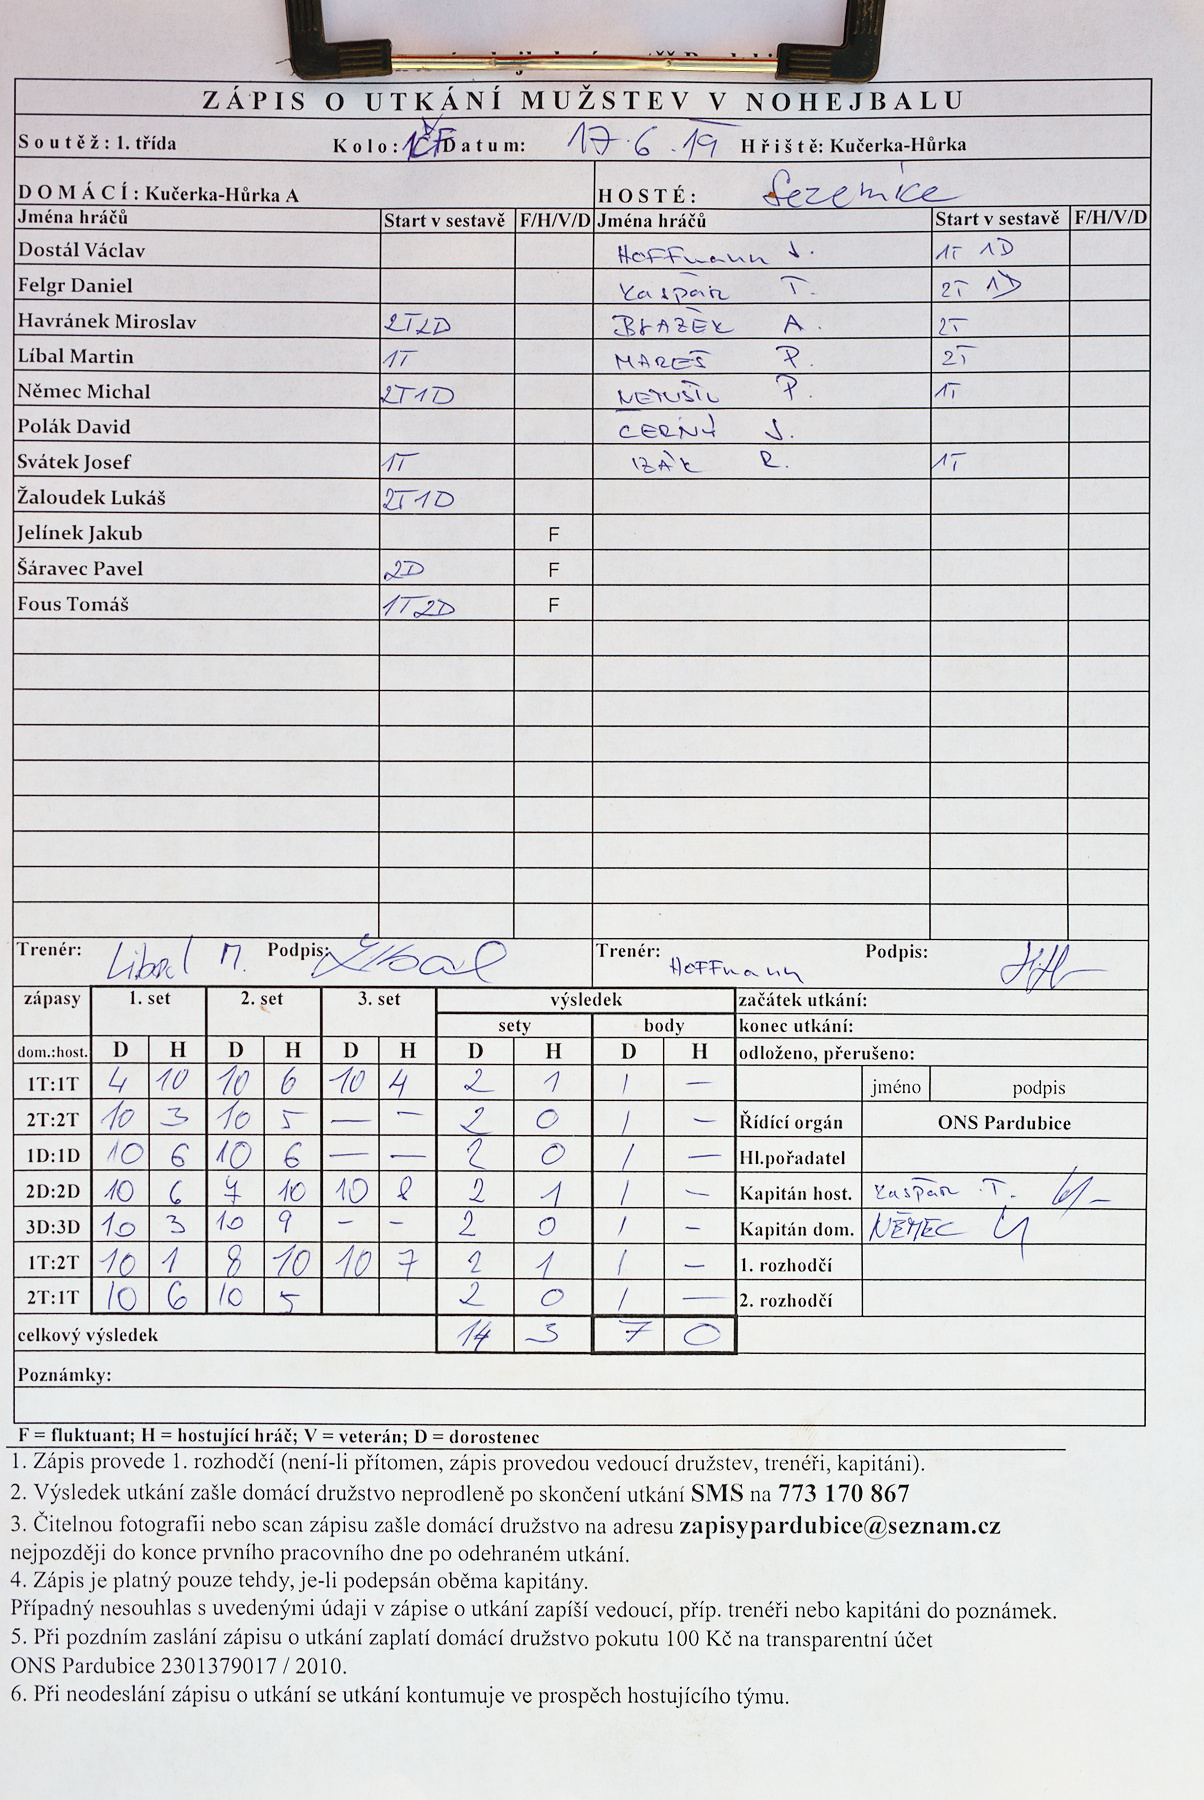 ZÁPIS O UTKÁNÍ MUŽSTEV V NOHEJBALU
Soutěž: 1. třída Kolo: 1ČF Datum: 17.6.19 Hřiště: Kučerka-Hůrka
DOMÁCÍ: Kučerka-Hůrka A HOSTÉ: Sezemice
Jména hráčů Start v sestavě F/H/V/D Jména hráčů Start v sestavě F/H/V/D
Dostál Václav Hoffmann J. 1T 1D
Felgr Daniel Kašpar T. 2T 1D
Havránek Miroslav 2T2D BLAŽEK A. 2T
Líbal Martin 1T MAREŠ P. 2T
Němec Michal 2T1D P. 1T
Polák David ČERNÝ J.
Svátek Josef 1T IZÁK R. 1T
Žaloudek Lukáš 2T1D
Jelínek Jakub F
Šáravec Pavel 2D F
Fous Tomáš 1T2D F
Trenér: Líbal M. Podpis: Trenér: Hoffmann Podpis:
zápasy 1. set 2. set 3. set výsledek začátek utkání:
sety body konec utkání:
dom.:host. D H D H D H D H D H odloženo, přerušeno:
1T:1T 4 10 10 6 10 4 2 1 1 – jméno podpis
2T:2T 10 3 10 5 – – 2 0 1 – Řídící orgán ONS Pardubice
1D:1D 10 6 10 6 – – 2 0 1 – Hl.pořadatel
2D:2D 10 6 7 10 10 8 2 1 1 – Kapitán host. Kašpar T.
3D:3D 10 3 10 9 – – 2 0 1 – Kapitán dom. NĚMEC
1T:2T 10 1 8 10 10 7 2 1 1 – 1. rozhodčí
2T:1T 10 6 10 5 2 0 1 – 2. rozhodčí
celkový výsledek 14 3 7 0
Poznámky:
F = fluktuant; H = hostující hráč; V = veterán; D = dorostenec
1. Zápis provede 1. rozhodčí (není-li přítomen, zápis provedou vedoucí družstev, trenéři, kapitáni).
2. Výsledek utkání zašle domácí družstvo neprodleně po skončení utkání SMS na 773 170 867
3. Čitelnou fotografii nebo scan zápisu zašle domácí družstvo na adresu zapisypardubice@seznam.cz
nejpozději do konce prvního pracovního dne po odehraném utkání.
4. Zápis je platný pouze tehdy, je-li podepsán oběma kapitány.
Případný nesouhlas s uvedenými údaji v zápise o utkání zapíší vedoucí, příp. trenéři nebo kapitáni do poznámek.
5. Při pozdním zaslání zápisu o utkání zaplatí domácí družstvo pokutu 100 Kč na transparentní účet
ONS Pardubice 2301379017 / 2010.
6. Při neodeslání zápisu o utkání se utkání kontumuje ve prospěch hostujícího týmu.